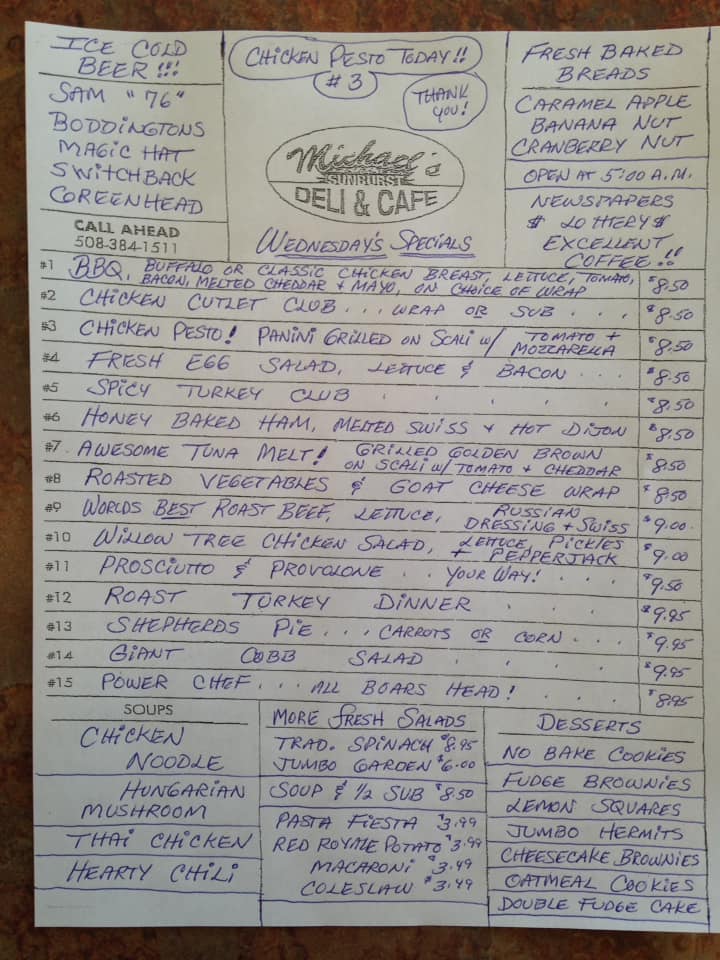 ICE COLD
BEER!!!
SAM "76"
BODDINGTONS
MAGIC HAT
SWITCHBACK
GREENHEAD
CALL AHEAD
508-384-1511
CHICKEN PESTO TODAY!!
#3
THANK
YOU!
Michael's
SUNBURST
DELI & CAFE
WEDNESDAY'S SPECIALS
FRESH BAKED
BREADS
CARAMEL APPLE
BANANA NUT
CRANBERRY NUT
OPEN AT 5:00 A.M.
NEWSPAPERS
$ LOTTERY $
EXCELLENT
COFFEE!!
#1 BBQ, BUFFALO OR CLASSIC CHICKEN BREAST, LETTUCE, TOMATO,
BACON, MELTED CHEDDAR + MAYO, ON CHOICE OF WRAP $8.50
#2 CHICKEN CUTLET CLUB... WRAP OR SUB... $8.50
#3 CHICKEN PESTO! PANINI GRILLED ON SCALI W/ TOMATO +
MOZZARELLA $8.50
#4 FRESH EGG SALAD, LETTUCE & BACON... $8.50
#5 SPICY TURKEY CLUB..... $8.50
#6 HONEY BAKED HAM, MELTED SWISS + HOT DIJON $8.50
#7 AWESOME TUNA MELT! GRILLED GOLDEN BROWN
ON SCALI W/ TOMATO + CHEDDAR $8.50
#8 ROASTED VEGETABLES & GOAT CHEESE WRAP $8.50
#9 WORLDS BEST ROAST BEEF, LETTUCE, RUSSIAN
DRESSING + SWISS $9.00
#10 WILLOW TREE CHICKEN SALAD, LETTUCE, PICKLES
+ PEPPERJACK $9.00
#11 PROSCIUTTO & PROVOLONE.. YOUR WAY!... $9.50
#12 ROAST TURKEY DINNER... $9.95
#13 SHEPHERDS PIE... CARROTS OR CORN... $9.95
#14 GIANT COBB SALAD.... $9.95
#15 POWER CHEF... ALL BOARS HEAD!.. $8.95
SOUPS
CHICKEN
NOODLE
HUNGARIAN
MUSHROOM
THAI CHICKEN
HEARTY CHILI
MORE FRESH SALADS
TRAD. SPINACH $8.95
JUMBO GARDEN $6.00
SOUP & 1/2 SUB $8.50
PASTA FIESTA $3.99
RED ROYME POTATO $3.99
MACARONI $3.49
COLESLAW $3.49
DESSERTS
NO BAKE COOKIES
FUDGE BROWNIES
LEMON SQUARES
JUMBO HERMITS
CHEESECAKE BROWNIES
OATMEAL COOKIES
DOUBLE FUDGE CAKE